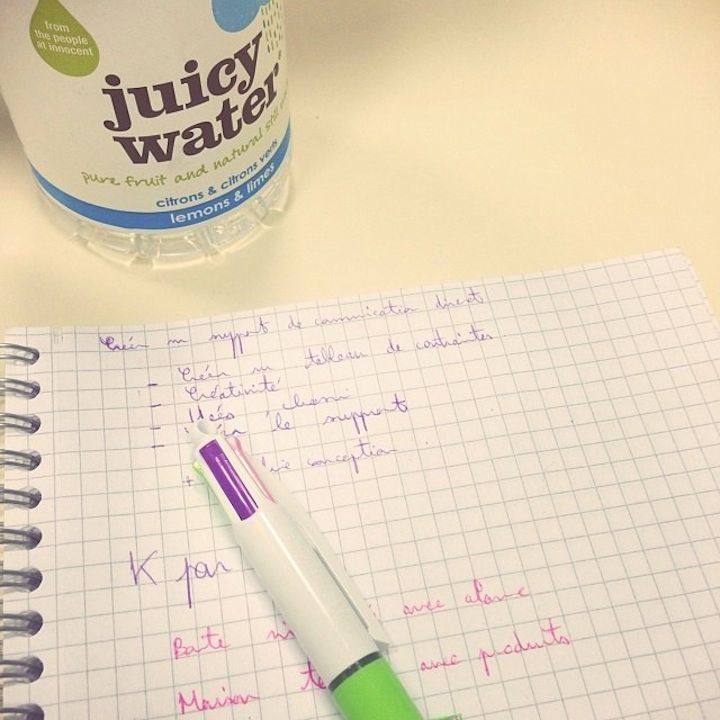 from
the people
at innocent
juicy
water
pure fruit and natural still
citrons & citrons verts
lemons & limes
Créer un support de communication direct
- Créer un tableau de contraintes
- Créativité
- Idées
- le support
+ conception
K par
Boite avec alarme
Maison avec produits